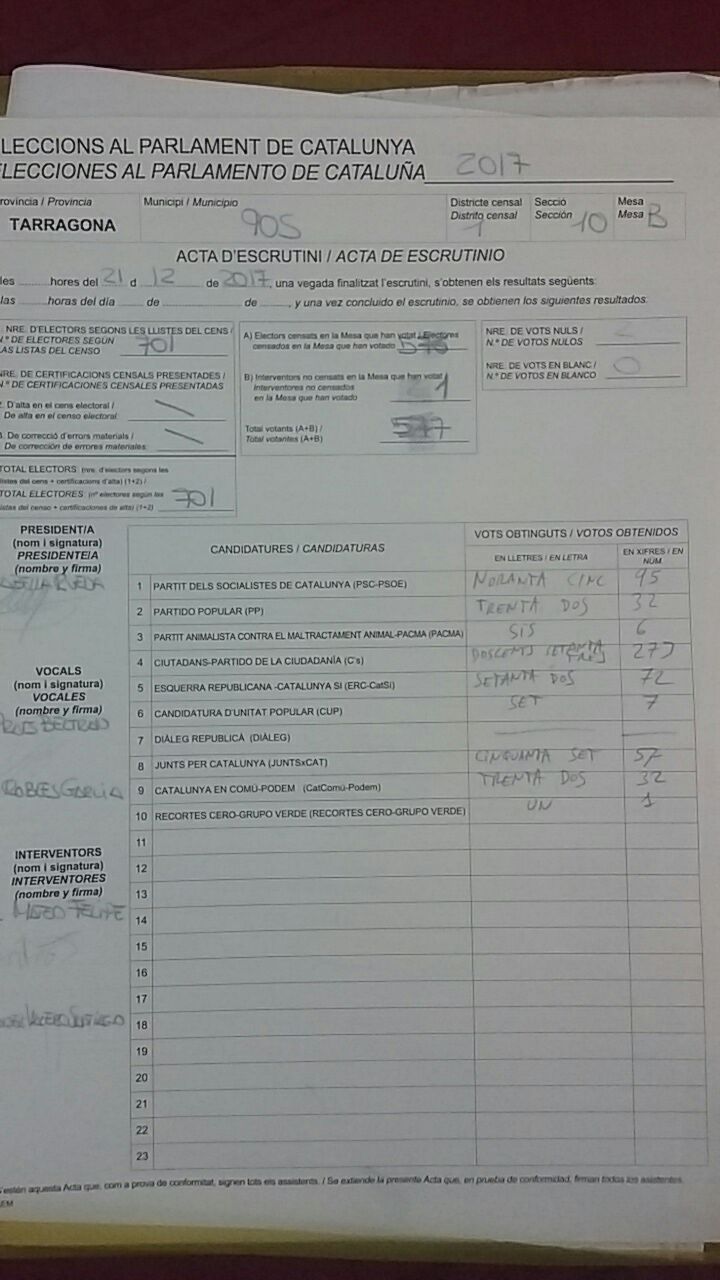 LECCIONS AL PARLAMENT DE CATALUNYA
ELECCIONES AL PARLAMENTO DE CATALUÑA 2017
rovíncia / Provincia
TARRAGONA
Municipi / Municipio
905
Districte censal
Distrito censal
1
Secció
Sección 10
Mesa
Mesa B
ACTA D'ESCRUTINI / ACTA DE ESCRUTINIO
les ..........hores del 21 d 12 de 2017, una vegada finalitzat l'escrutini, s'obtenen els resultats següents:
las ..........horas del día ...... de ...... de ......, y una vez concluido el escrutinio, se obtienen los siguientes resultados:
NRE. D'ELECTORS SEGONS LES LLISTES DEL CENS /
N.º DE ELECTORES SEGÚN
LAS LISTAS DEL CENSO 701
NRE. DE CERTIFICACIONS CENSALS PRESENTADES /
N.º DE CERTIFICACIONES CENSALES PRESENTADAS
. D'alta en el cens electoral /
De alta en el censo electoral:
. De correcció d'errors materials /
De corrección de errores materiales:
TOTAL ELECTORS: (nre. d'electors segons les
listes del cens + certificacions d'alta) (1+2) /
TOTAL ELECTORES: (nº electores según las
istas del censo + certificaciones de alta) (1+2) 701
A) Electors censats en la Mesa que han votat / Electores
censados en la Mesa que han votado
B) Interventors no censats en la Mesa que han votat /
Interventores no censados
en la Mesa que han votado 1
Total votants (A+B) /
Total votantes (A+B)
NRE. DE VOTS NULS /
N.º DE VOTOS NULOS
NRE. DE VOTS EN BLANC /
N.º DE VOTOS EN BLANCO 0
PRESIDENT/A
(nom i signatura)
PRESIDENTE/A
(nombre y firma)
RUEDA
VOCALS
(nom i signatura)
VOCALES
(nombre y firma)
BELTRAN
ROBLES GARCIA
INTERVENTORS
(nom i signatura)
INTERVENTORES
(nombre y firma)
MATEO FELIPE
CANDIDATURES / CANDIDATURAS
VOTS OBTINGUTS / VOTOS OBTENIDOS
EN LLETRES / EN LETRA
EN XIFRES / EN NÚM.
1 PARTIT DELS SOCIALISTES DE CATALUNYA (PSC-PSOE) NORANTA CINC 95
2 PARTIDO POPULAR (PP) TRENTA DOS 32
3 PARTIT ANIMALISTA CONTRA EL MALTRACTAMENT ANIMAL-PACMA (PACMA) SIS 6
4 CIUTADANS-PARTIDO DE LA CIUDADANÍA (C's) DOSCENTS SETANTA TRES 273
5 ESQUERRA REPUBLICANA -CATALUNYA SÍ (ERC-CatSí) SETANTA DOS 72
6 CANDIDATURA D'UNITAT POPULAR (CUP) SET 7
7 DIÀLEG REPUBLICÀ (DIÀLEG)
8 JUNTS PER CATALUNYA (JUNTSxCAT) CINQUANTA SET 57
9 CATALUNYA EN COMÚ-PODEM (CatComú-Podem) TRENTA DOS 32
10 RECORTES CERO-GRUPO VERDE (RECORTES CERO-GRUPO VERDE) UN 1
11
12
13
14
15
16
17
18
19
20
21
22
23
S'estén aquesta Acta que, com a prova de conformitat, signen tots els assistents. / Se extiende la presente Acta que, en prueba de conformidad, firman todos los asistentes.